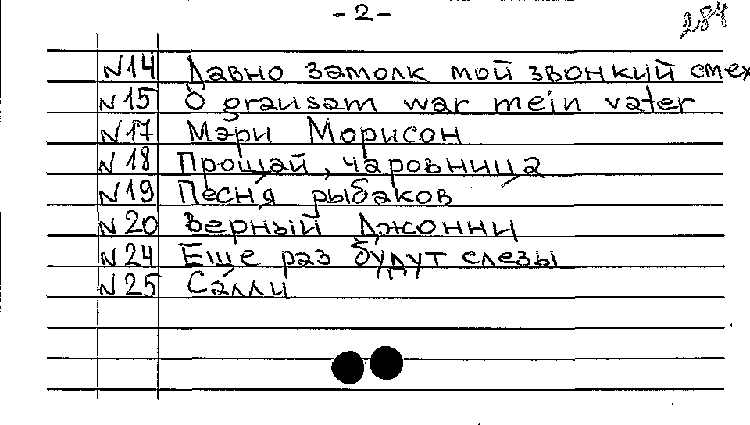 - 2 -
284
N14 Давно замолк мой звонкий смех
N15 O grausam war mein vater
N17 Мэри Морисон
N18 Прощай, чаровница
N19 Песня рыбаков
N20 Верный Джонни
N24 Еще раз будут слезы
N25 Салли